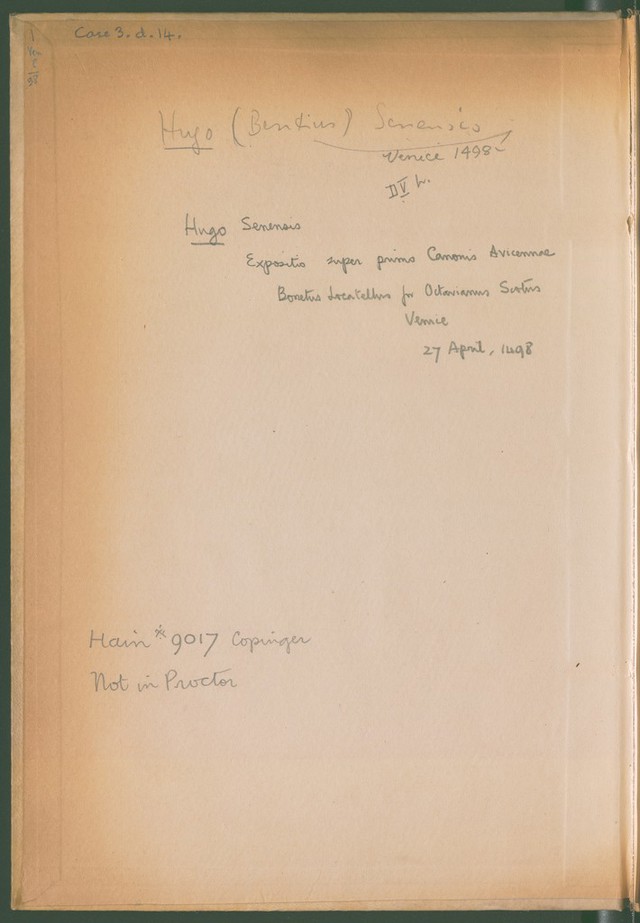 Case 3. d. 14.
Hugo (Bentius) Senensis
Venice 1498
Hugo Senensis
Expositio super primo Canonis Avicennae
Bonetus Locatellus for Octavianus Scotus
Venice
27 April, 1498
Hain *9017 Copinger
Not in Proctor